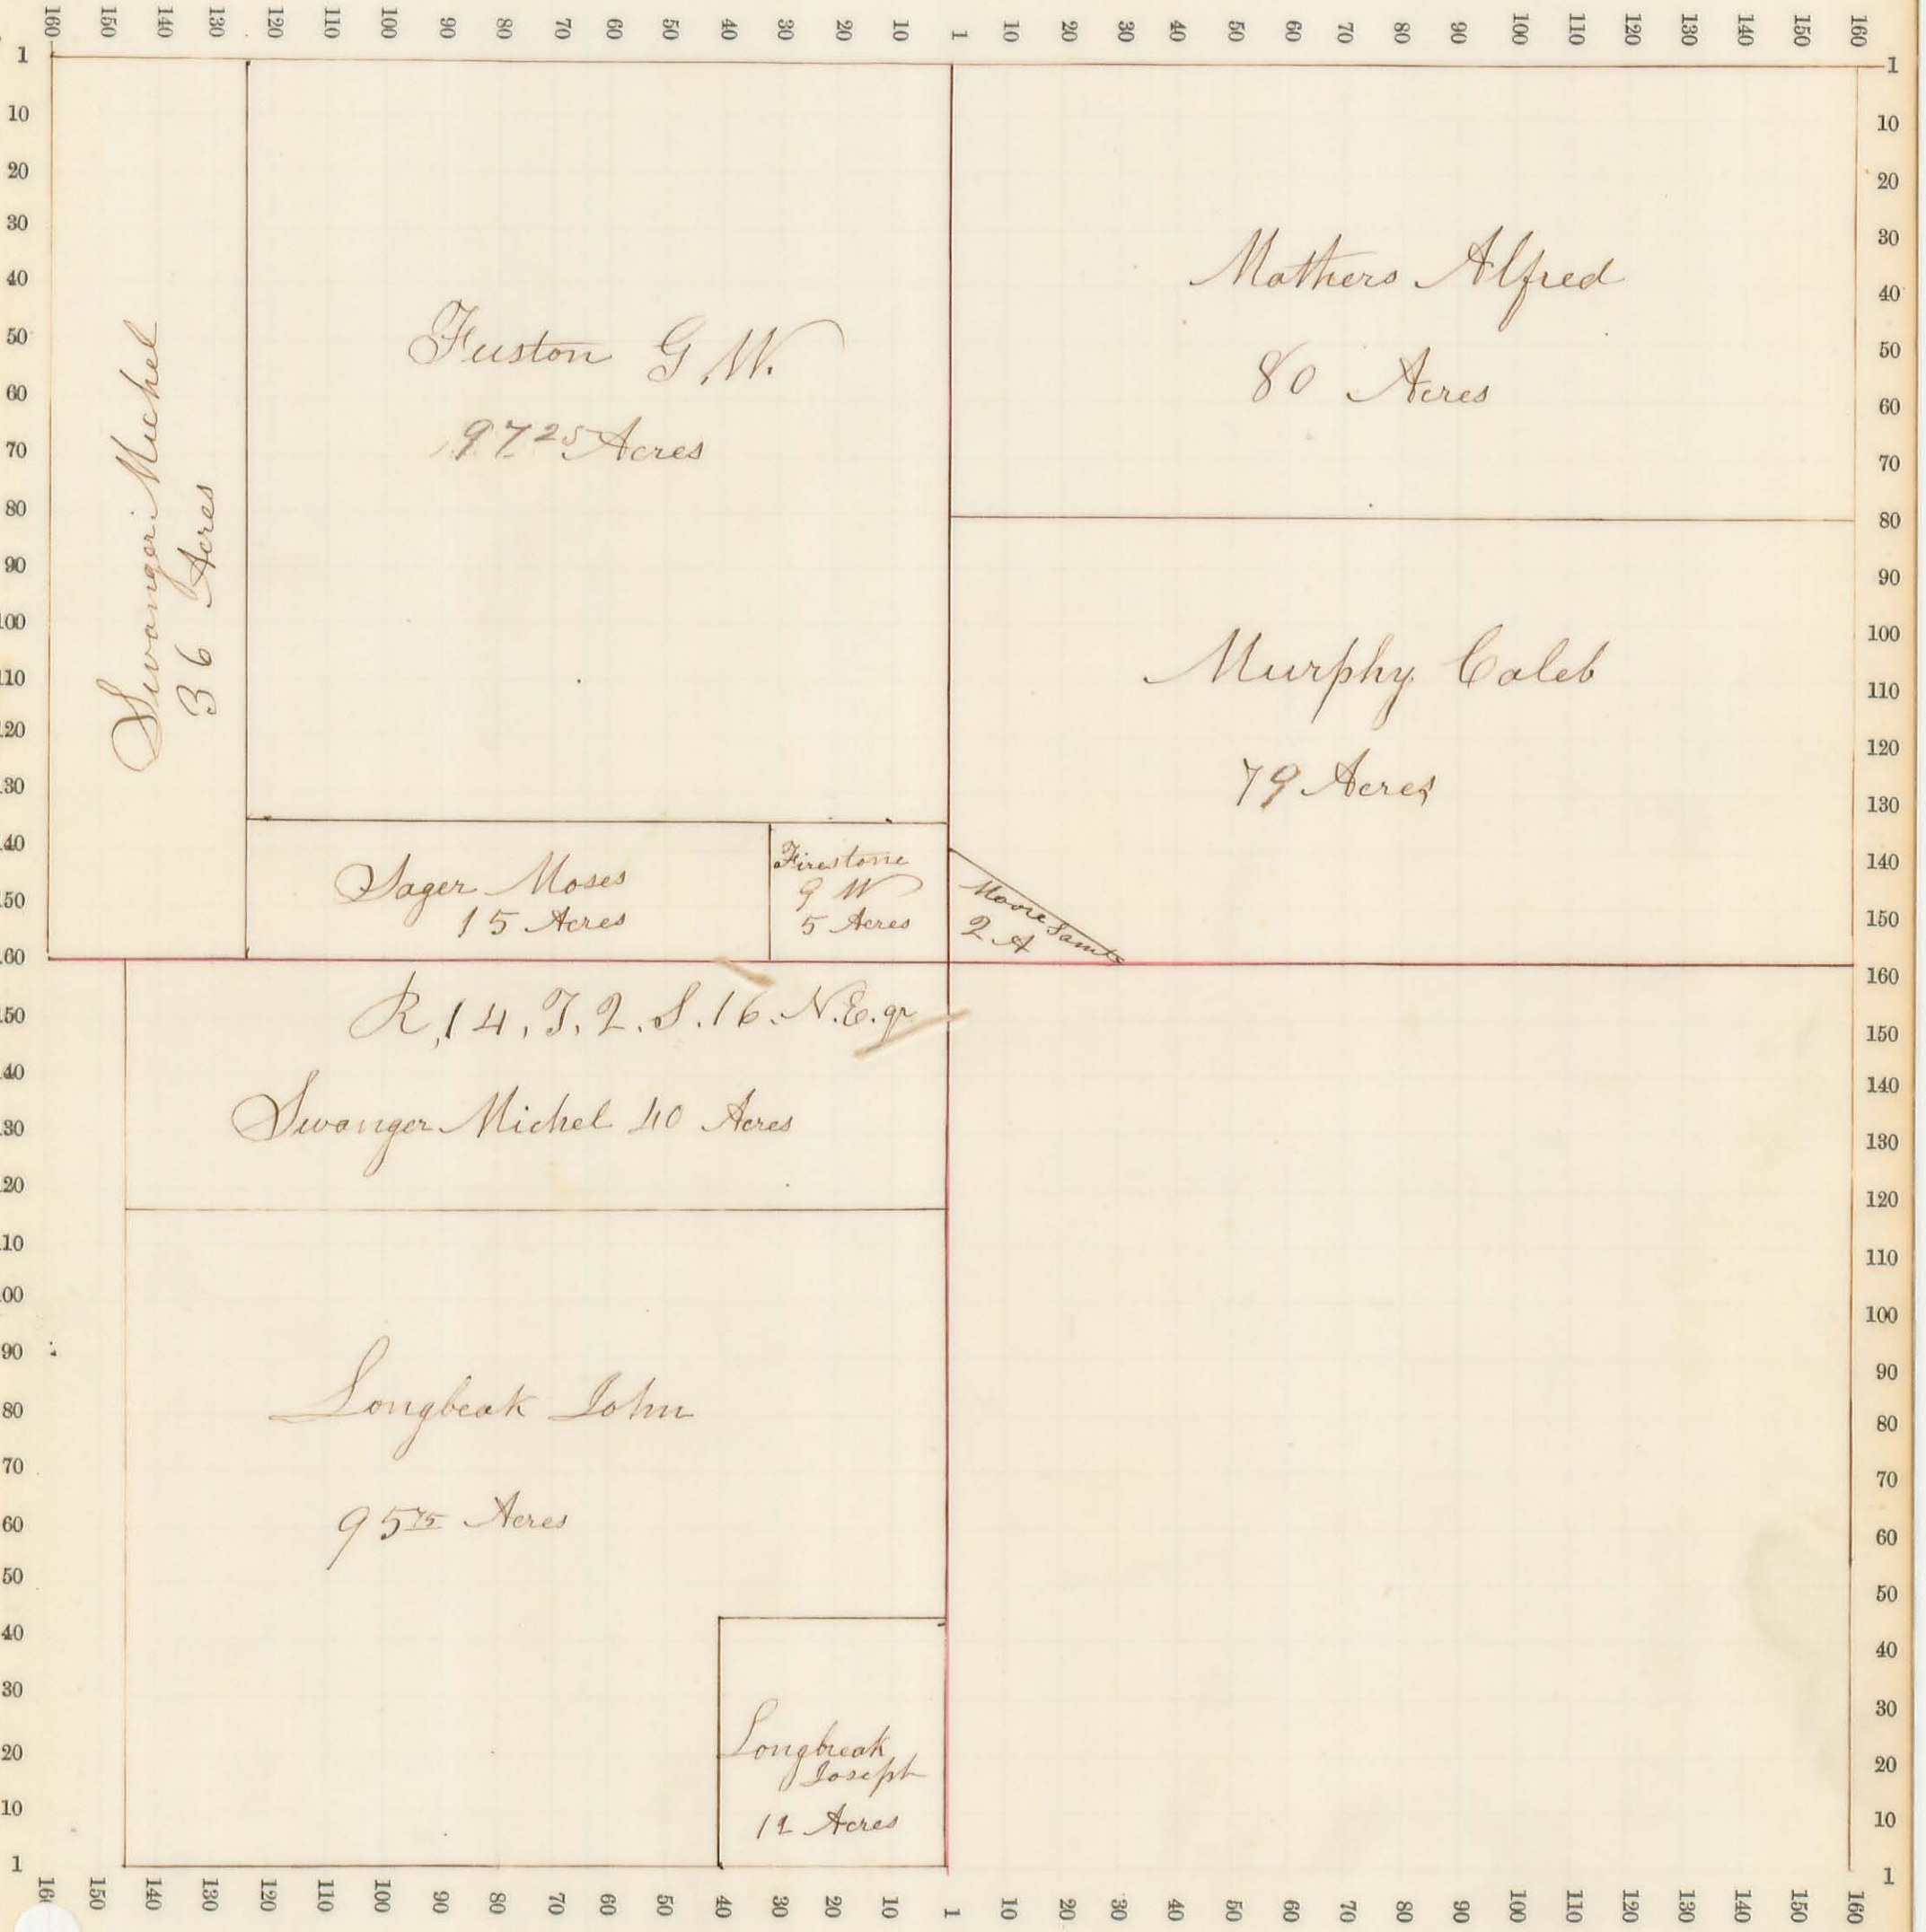 160 150 140 130 120 110 100 90 80 70 60 50 40 30 20 10 1 10 20 30 40 50 60 70 80 90 100 110 120 130 140 150 160
1 1
10 10
20 20
30 30
40 40
50 50
60 60
70 70
80 80
90 90
100 100
110 110
120 120
30 130
40 140
50 150
60 160
50 150
40 140
30 130
20 120
10 110
00 100
90 90
80 80
70 70
60 60
50 50
40 40
30 30
20 20
10 10
1 1
Swanger Michel
36 Acres
Fuston G.W.
97 25 Acres
Mathers Alfred
80 Acres
Murphy Caleb
79 Acres
Sager Moses
15 Acres
Firestone
G W
5 Acres
Moore Saml
2 A
R, 14, T, 2. S. 16. N.E. qr
Swanger Michel 40 Acres
Longbeak John
95 75 Acres
Longbreak
Joseph
12 Acres
160 150 140 130 120 110 100 90 80 70 60 50 40 30 20 10 1 10 20 30 40 50 60 70 80 90 100 110 120 130 140 150 160